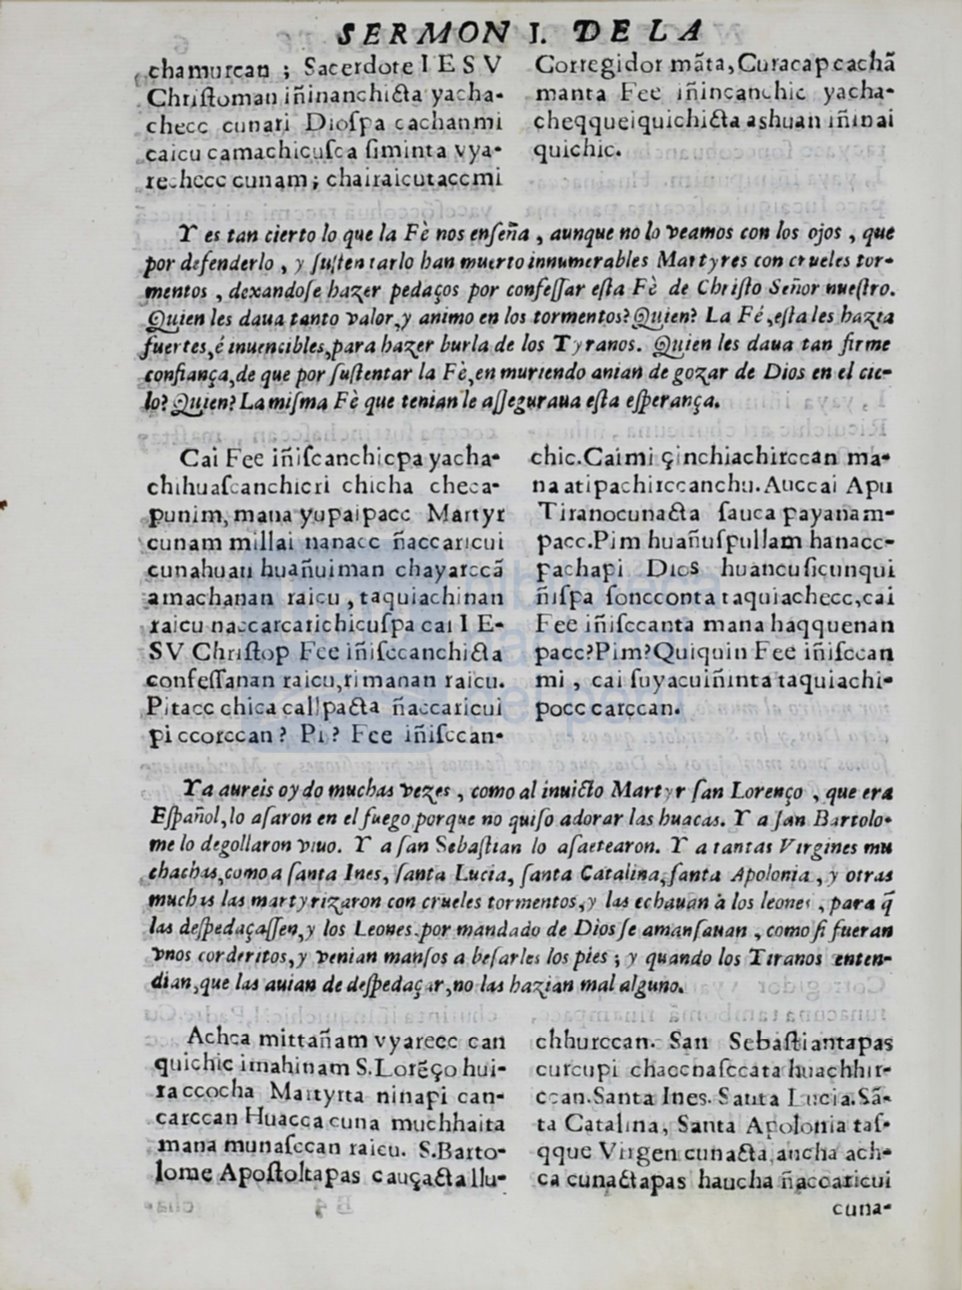 SERMON I. DE LA
chamurcan ; Sacerdote I E S V
Chriſtoman iñinanchicta yacha-
checc cunari Dioſpa cachanmi
caicu camachicuſca ſiminta vya-
rechecc cunam ; chairaicutaccmi
Corregidor mãta, Curacap cachã
manta Fee iñincanchic yacha-
cheqqueiquichicta ashuan iñinai
quichic.
Y es tan cierto lo que la Fè nos enſeña , aunque no lo veamos con los ojos , que
por defenderlo , y ſuſtentarlo han muerto innumerables Martyres con crueles tor-
mentos , dexandoſe hazer pedaços por confeſſar eſta Fè de Chriſto Señor nueſtro.
Quien les daua tanto valor,y animo en los tormentos? Quien? La Fé ,eſta les hazia
fuertes,é inuencibles,para hazer burla de los Tyranos. Quien les daua tan firme
confiança,de que por ſuſtentar la Fè,en muriendo auian de gozar de Dios en el cie-
lo? Quien? La miſma Fè que tenian le aſſeguraua eſta eſperança.
Cai Fee iñiſcanchicpa yacha-
chihuaſcanchicri chicha checa-
punim, mana yupaipacc Martyr
cunam millai nanacc ñaccaricui
cunahuan huañuiman chayarccã
amachanan raicu , taquiachinan
raicu naccarcarichicuſpa cai I E-
SV Chriſtop Fee iñiſccanchicta
confeſſanan raicu,rimanan raicu.
Pitacc chica callpacta ñaccaricui
pi ccorccan ? Pi ? Fee iñiſccan-
chic.Caimi çinchiachirccan ma-
na atipachirccanchu.Auccai Apu
Tiranocunacta ſauca payanam-
pacc.Pim huañuſpullam hanacc-
pachapi Dios huancuſicunqui
ñiſpa ſoncconta taquiachecc,cai
Fee iñiſccanta mana haqquenan
pacc?Pim?Quiquin Fee iñiſccan
mi , cai ſuyacuiñinta taquiachi-
pocc carccan.
Ya aureis oydo muchas vezes , como al inuicto Martyr ſan Lorenço , que era
Eſpañol,lo aſaron en el fuego porque no quiſo adorar las huacas. Y a ſan Bartolo-
me lo degollaron viuo. Y a ſan Sebaſtian lo aſaetearon. Y a tantas Virgines mu
chachas,como a ſanta Ines, ſanta Lucia, ſanta Catalina, ſanta Apolonia , y otras
muchas las martyrizaron con crueles tormentos,y las echauan à los leones , para q̃
las deſpedaçaſſen,y los Leones por mandado de Dios ſe amanſauan , como ſi fueran
vnos corderitos,y venian manſos a beſarles los pies ; y quando los Tiranos enten-
dian,que las auian de deſpedaçar,no las hazian mal alguno.
Achca mittañam vyarecc can
quichic imahinam S.Lorẽço hui-
raccocha Martyrta ninapi can-
carccan Huacca cuna muchhaita
mana munaſccan raicu. S.Barto-
lome Apoſtoltapas cauçacta llu-
chhurccan. San Sebaſtiantapas
curcupi chaccnaſccata huachhir-
ccan.Santa Ines. Santa Lucia.Sã-
ta Catalina, Santa Apolonia taſ-
qque Virgen cunacta ancha ach-
ca cunactapas haucha ñaccaricui
cuna-
biblioteca
nacional
del perú